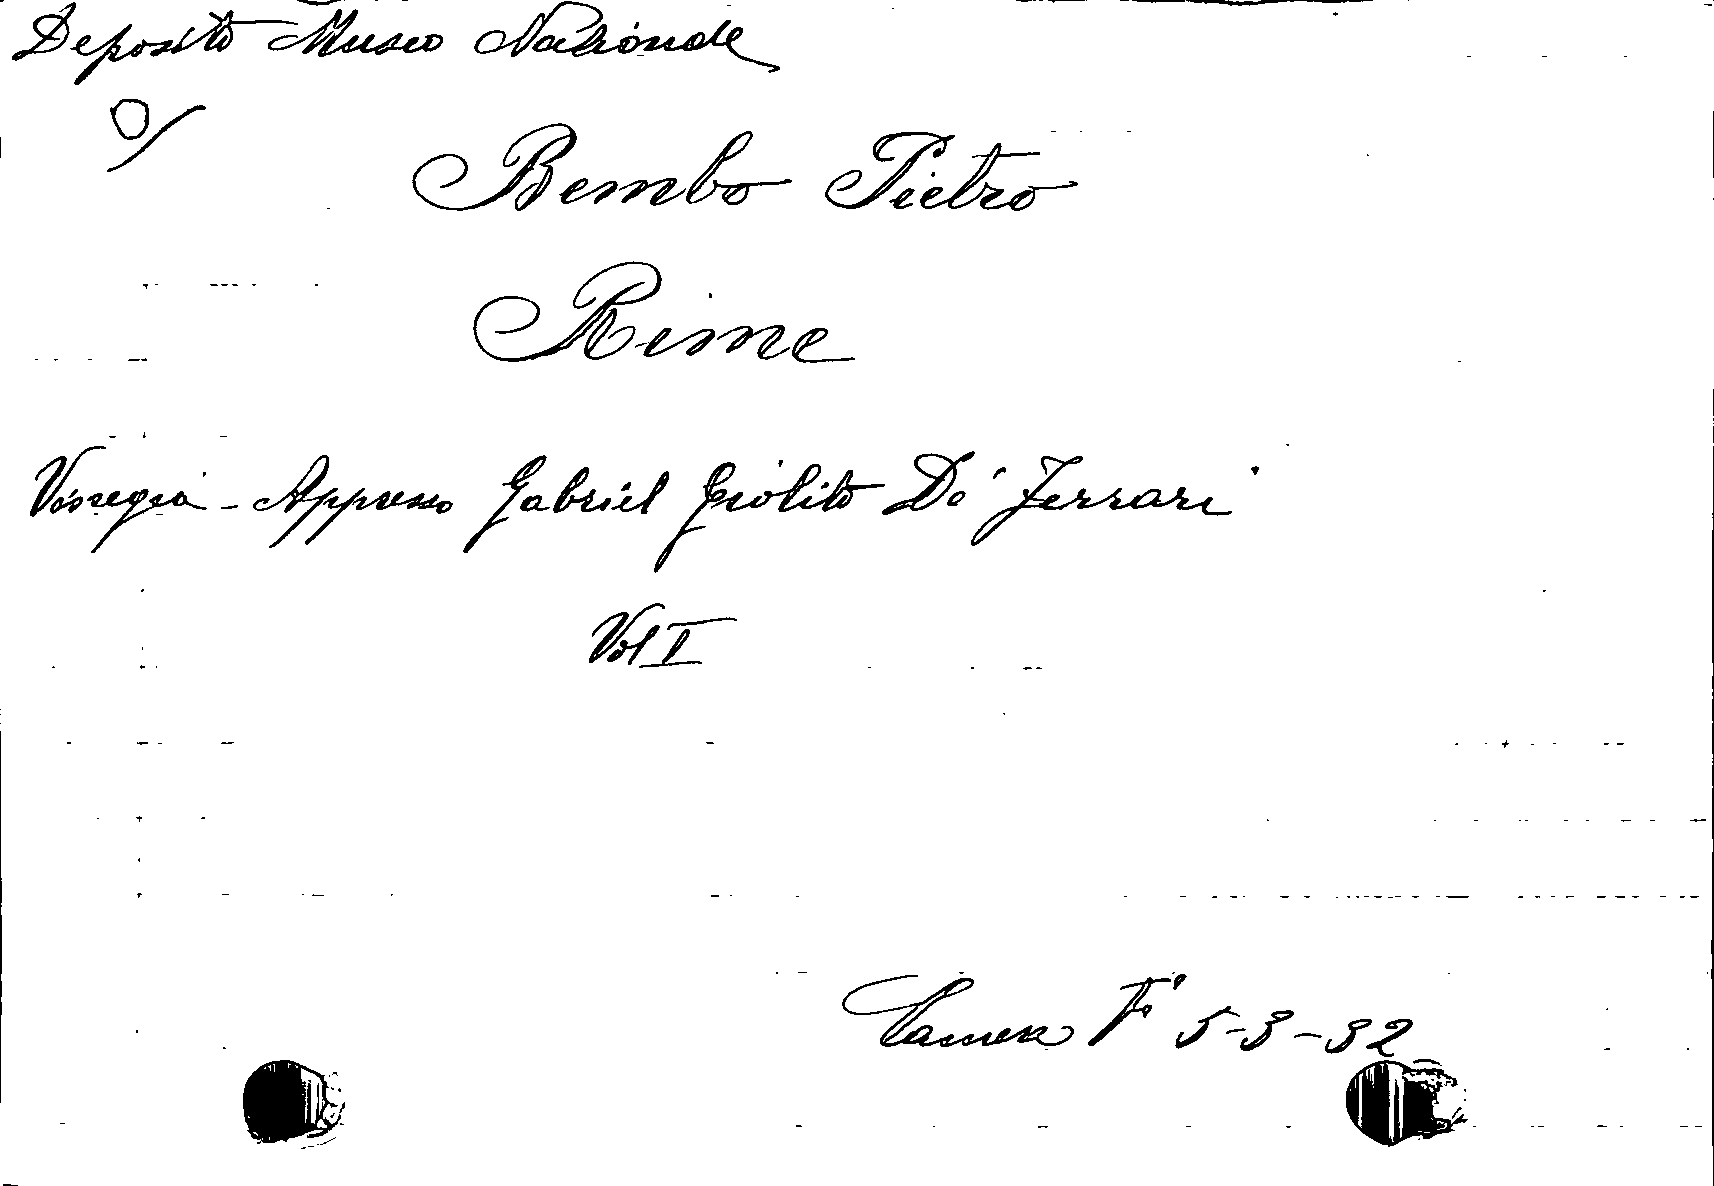 Deposito Museo Nazionale
Bembo Pietro
Rime
Vinegia - Appresso Gabriel Giolito De' Ferrari
Vol I
Camera F 5-3-32